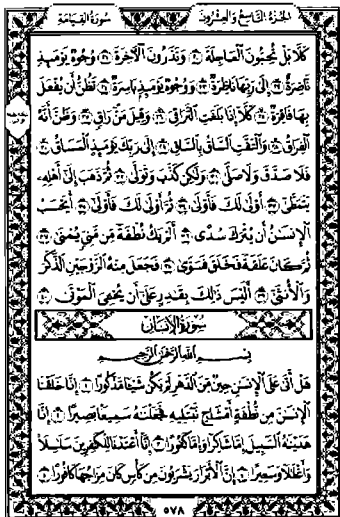 سُورَةُ القِيَامَةِ
الجُزْءُ التَّاسِعُ وَالعِشْرُونَ
كَلَّا بَلْ تُحِبُّونَ الْعَاجِلَةَ ٢٠ وَتَذَرُونَ الْآخِرَةَ ٢١ وُجُوهٌ يَوْمَئِذٍ
نَّاضِرَةٌ ٢٢ إِلَىٰ رَبِّهَا نَاظِرَةٌ ٢٣ وَوُجُوهٌ يَوْمَئِذٍ بَاسِرَةٌ ٢٤ تَظُنُّ أَن يُفْعَلَ
بِهَا فَاقِرَةٌ ٢٥ كَلَّا إِذَا بَلَغَتِ التَّرَاقِيَ ٢٦ وَقِيلَ مَنْ رَاقٍ ٢٧ وَظَنَّ أَنَّهُ
الْفِرَاقُ ٢٨ وَالْتَفَّتِ السَّاقُ بِالسَّاقِ ٢٩ إِلَىٰ رَبِّكَ يَوْمَئِذٍ الْمَسَاقُ ٣٠
فَلَا صَدَّقَ وَلَا صَلَّىٰ ٣١ وَلَٰكِن كَذَّبَ وَتَوَلَّىٰ ٣٢ ثُمَّ ذَهَبَ إِلَىٰ أَهْلِهِ
يَتَمَطَّىٰ ٣٣ أَوْلَىٰ لَكَ فَأَوْلَىٰ ٣٤ ثُمَّ أَوْلَىٰ لَكَ فَأَوْلَىٰ ٣٥ أَيَحْسَبُ
الْإِنسَانُ أَن يُتْرَكَ سُدًى ٣٦ أَلَمْ يَكُ نُطْفَةً مِّن مَّنِيٍّ يُمْنَىٰ ٣٧
ثُمَّ كَانَ عَلَقَةً فَخَلَقَ فَسَوَّىٰ ٣٨ فَجَعَلَ مِنْهُ الزَّوْجَيْنِ الذَّكَرَ
وَالْأُنثَىٰ ٣٩ أَلَيْسَ ذَٰلِكَ بِقَادِرٍ عَلَىٰ أَن يُحْيِيَ الْمَوْتَىٰ ٤٠
سُورَةُ الإِنسَانِ
بِسْمِ اللَّهِ الرَّحْمَٰنِ الرَّحِيمِ
هَلْ أَتَىٰ عَلَى الْإِنسَانِ حِينٌ مِّنَ الدَّهْرِ لَمْ يَكُن شَيْئًا مَّذْكُورًا ١ إِنَّا خَلَقْنَا
الْإِنسَانَ مِن نُّطْفَةٍ أَمْشَاجٍ نَّبْتَلِيهِ فَجَعَلْنَاهُ سَمِيعًا بَصِيرًا ٢ إِنَّا
هَدَيْنَاهُ السَّبِيلَ إِمَّا شَاكِرًا وَإِمَّا كَفُورًا ٣ إِنَّا أَعْتَدْنَا لِلْكَافِرِينَ سَلَاسِلَا
وَأَغْلَالًا وَسَعِيرًا ٤ إِنَّ الْأَبْرَارَ يَشْرَبُونَ مِن كَأْسٍ كَانَ مِزَاجُهَا كَافُورًا ٥
٥٧٨